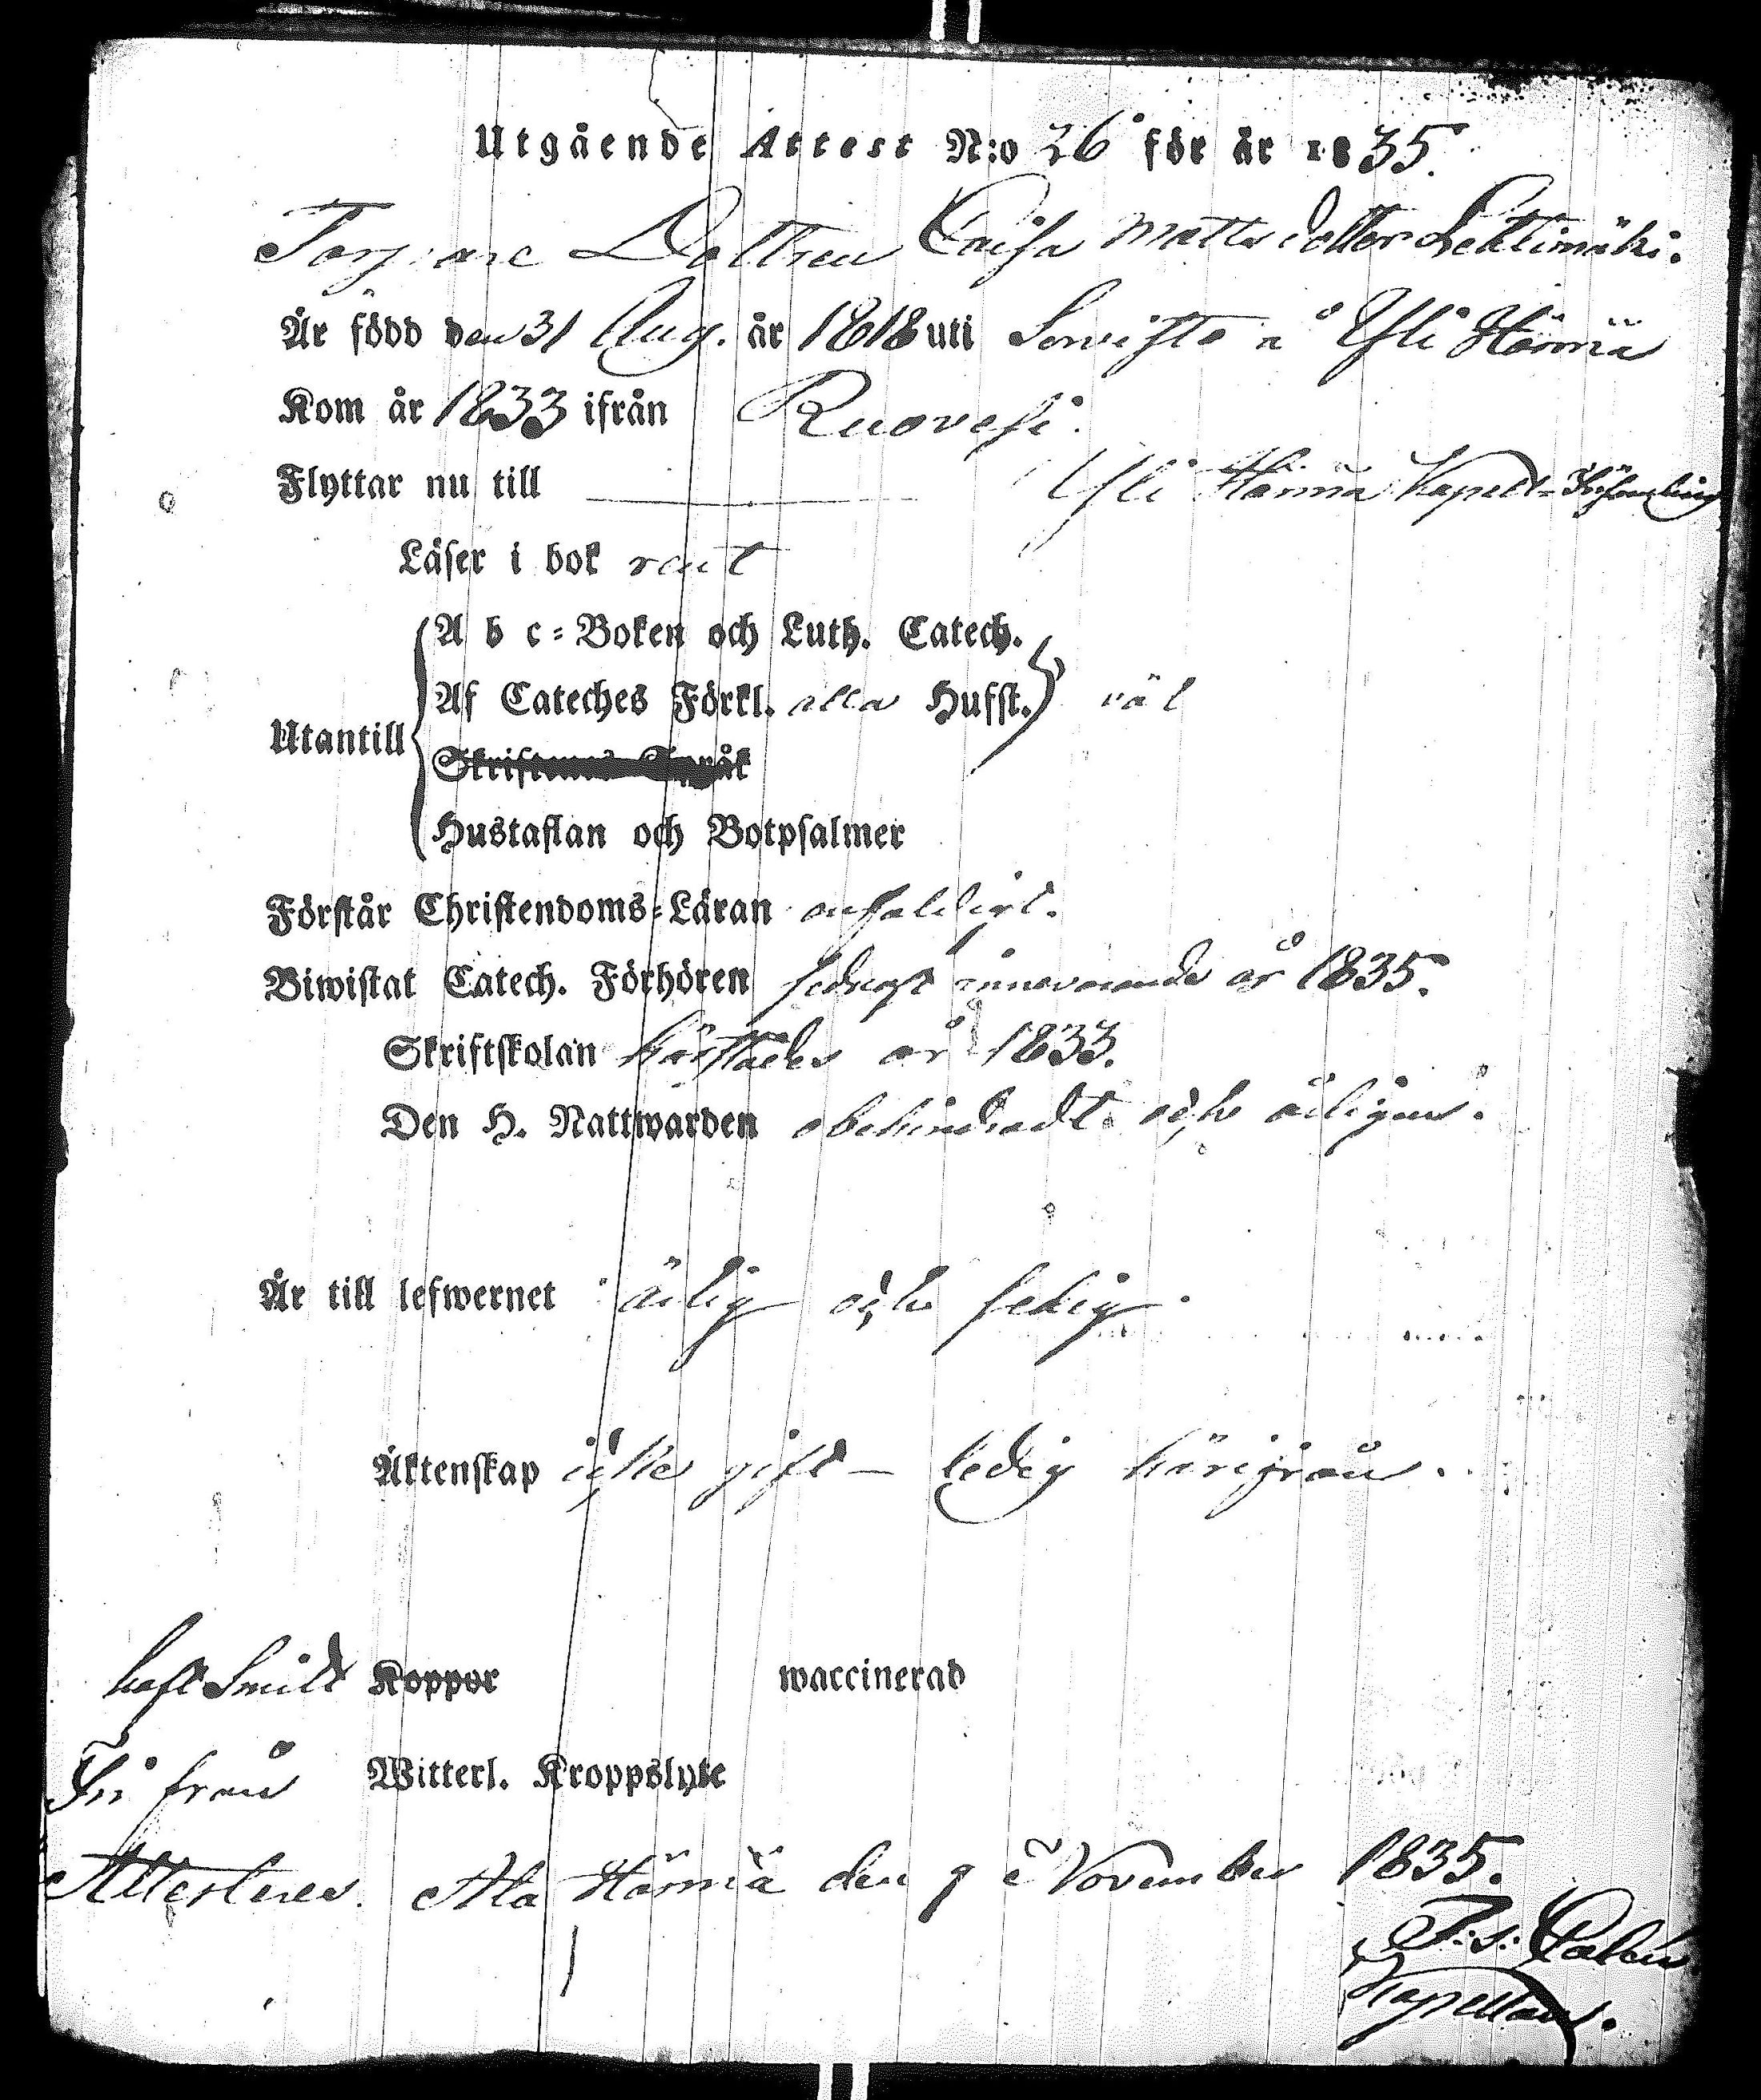 Utgående Attest N:o 26 för år 1835.
Torpare Dottren Caisa Matts dotter Lehtimäki.
Är född den 31 Aug. år 1818 uti å Yli Härmä
Kom år 1833 ifrån Ruovesi.
Flyttar nu till Yli Härmä Kapell-Församling
Läser i bok rent
A b c-Boken och Luth. Catech.
Af Cateches Förkl. alla Hufst. väl
Utantill
Skriftenes Språk
Hustaflan och Botpsalmer
Förstår Christendoms-Läran enfaldigt.
Biwistat Catech. Förhören sednast innevarande år 1835.
Skriftskolan härstädes år 1833.
Den H. Nattwarden obehindradt och årligen.
Är till lefwernet ärlig och sedig.
Äktenskap icke gift – ledig härifrån.
haft Koppor waccinerad
Fri från Witterl. Kroppslyte
Attesterar. Ala Härmä den 9 November 1835.
Kapellan.